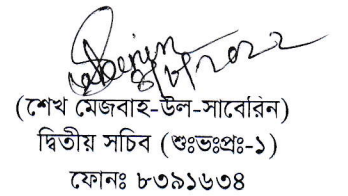 (শেখ মেজবাহ-উল-সাবেরিন)
দ্বিতীয় সচিব (শুঃভঃপ্রঃ-১)
ফোনঃ ৮৩৯১৬৩৪